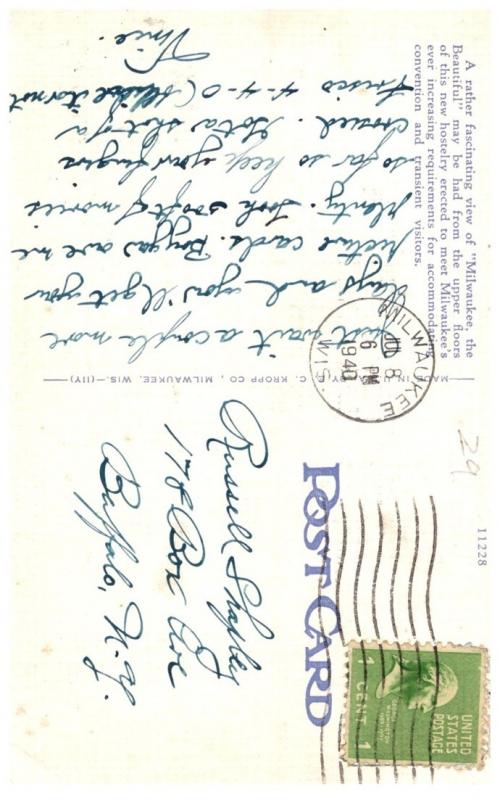 A rather fascinating view of "Milwaukee, the
Beautiful" may be had from the upper floors
of this new hostelry erected to meet Milwaukee's
ever increasing requirements for accommodating
convention and transient visitors.
Just wait a couple more
days and you'll get your
picture cards. Boy you owe me
plenty. Took 500 ft of movies
so far so keep your fingers
crossed. Got a shot of a
Frisco 4-4-0 (believe it or not
Vince.
MADE IN U.S.A. BY E. C. KROPP CO., MILWAUKEE, WIS.—(11Y)
MILWAUKEE
JUL 8
6 PM
1940
WIS.
29
11228
POST CARD
UNITED
STATES
POSTAGE
GEORGE
WASHINGTON
1789-1797
1 CENT 1
Russell Shapley
178 Box Ave
Buffalo, N.Y.